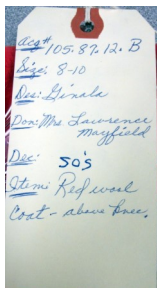 Acq# 105.87.12.B
Size: 8-10
Des: Ginala
Don: Mrs Lawrence
Mayfield
Dec: 50's
Item: Red wool
Coat - above knee.